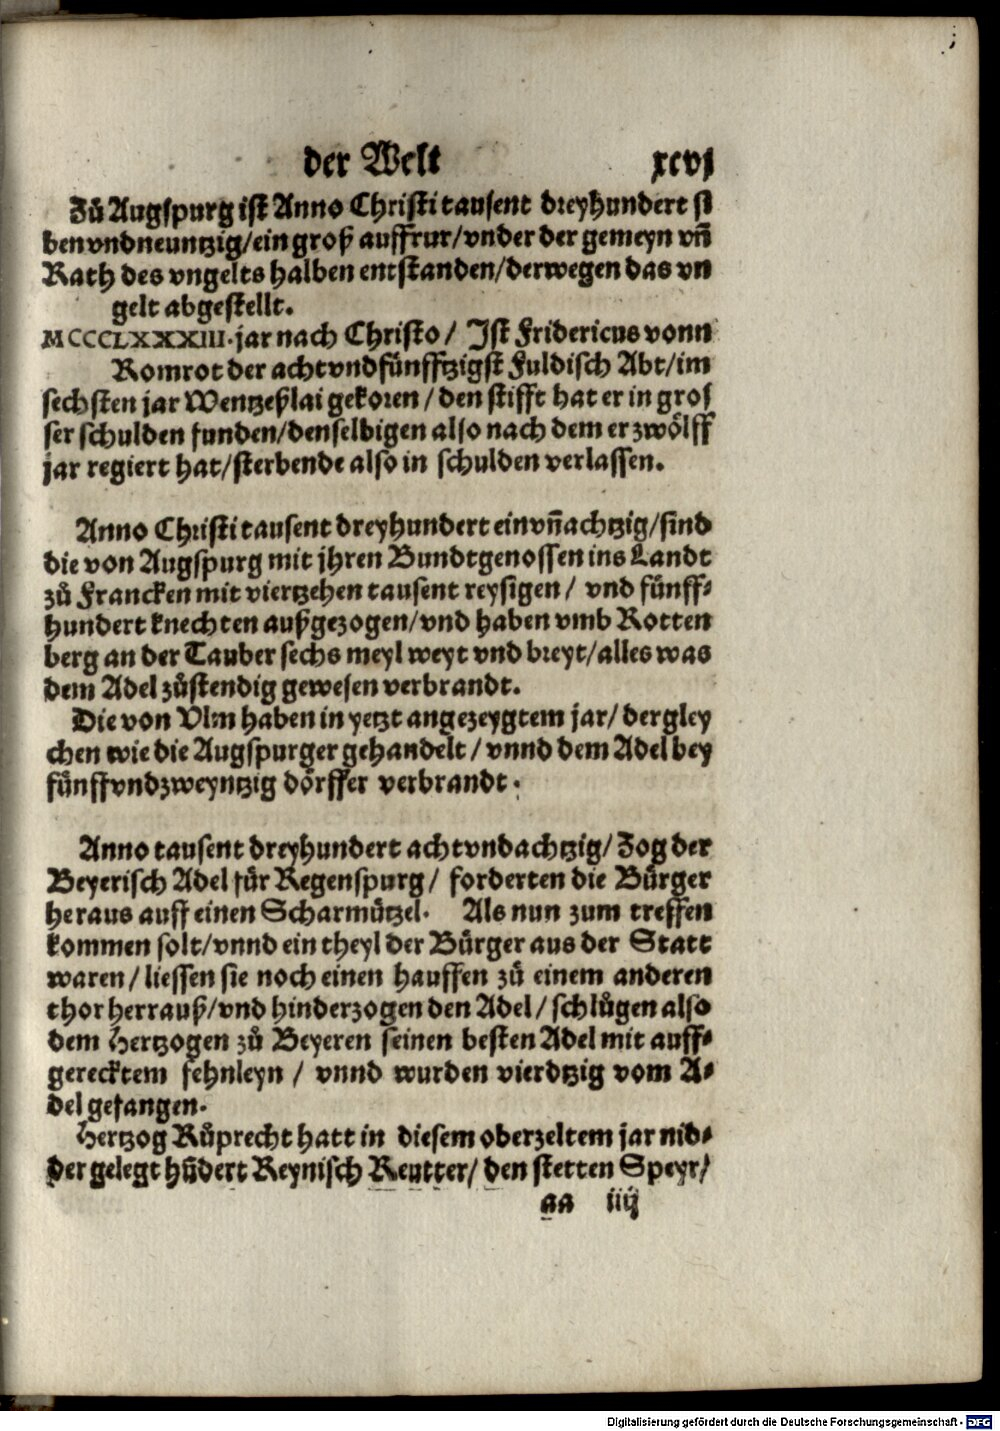 der Welt xcvj
Zů Augspurg ist Anno Christi tausent dreyhundert si
ben vndneuntzig/ein groß auffrur/vnder der gemeyn vñ
Rath des vngelts halben entstanden/derwegen das vn
gelt abgestellt.
MCCCLXXXIII. jar nach Christo/ Ist Fridericus vonn
Romrot der achtvndfünfftzigst Fuldisch Abt/im
sechsten jar Wentzeßlai gekoren/den stifft hat er in gros
ser schulden funden/denselbigen also nach dem er zwölff
jar regiert hat/sterbende also in schulden verlassen.
Anno Christi tausent dreyhundert einvñachtzig/sind
die von Augspurg mit jhren Bundtgenossen ins Landt
zů Francken mit viertzehen tausent reysigen/ vnd fünff⸗
hundert knechten außgezogen/vnd haben vmb Rotten
berg an der Tauber sechs meyl weyt vnd breyt/alles was
dem Adel zůstendig gewesen verbrandt.
Die von Vlm haben in yetzt angezeygtem jar/ dergley
chen wie die Augspurger gehandelt/vnnd dem Adel bey
fünffvndzweyntzig dörffer verbrandt.
Anno tausent dreyhundert achtvndachtzig/Zog der
Beyerisch Adel für Regenspurg/ forderten die Bürger
heraus auff einen Scharmützel. Als nun zum treffen
kommen solt/vnnd ein theyl der Bürger aus der Statt
waren/liessen sie noch einen hauffen zů einem anderen
thor herrauß/vnd hinderzogen den Adel/schlůgen also
dem Hertzogen zů Beyeren seinen besten Adel mit auff⸗
gerecktem fehnleyn/ vnnd wurden vierdtzig vom A⸗
del gefangen.
Hertzog Růprecht hatt in diesem oberzeltem jar nid⸗
der gelegt hũdert Reynisch Reutter/den stetten Speyr/
aa iiij
Digitalisierung gefördert durch die Deutsche Forschungsgemeinschaft - DFG